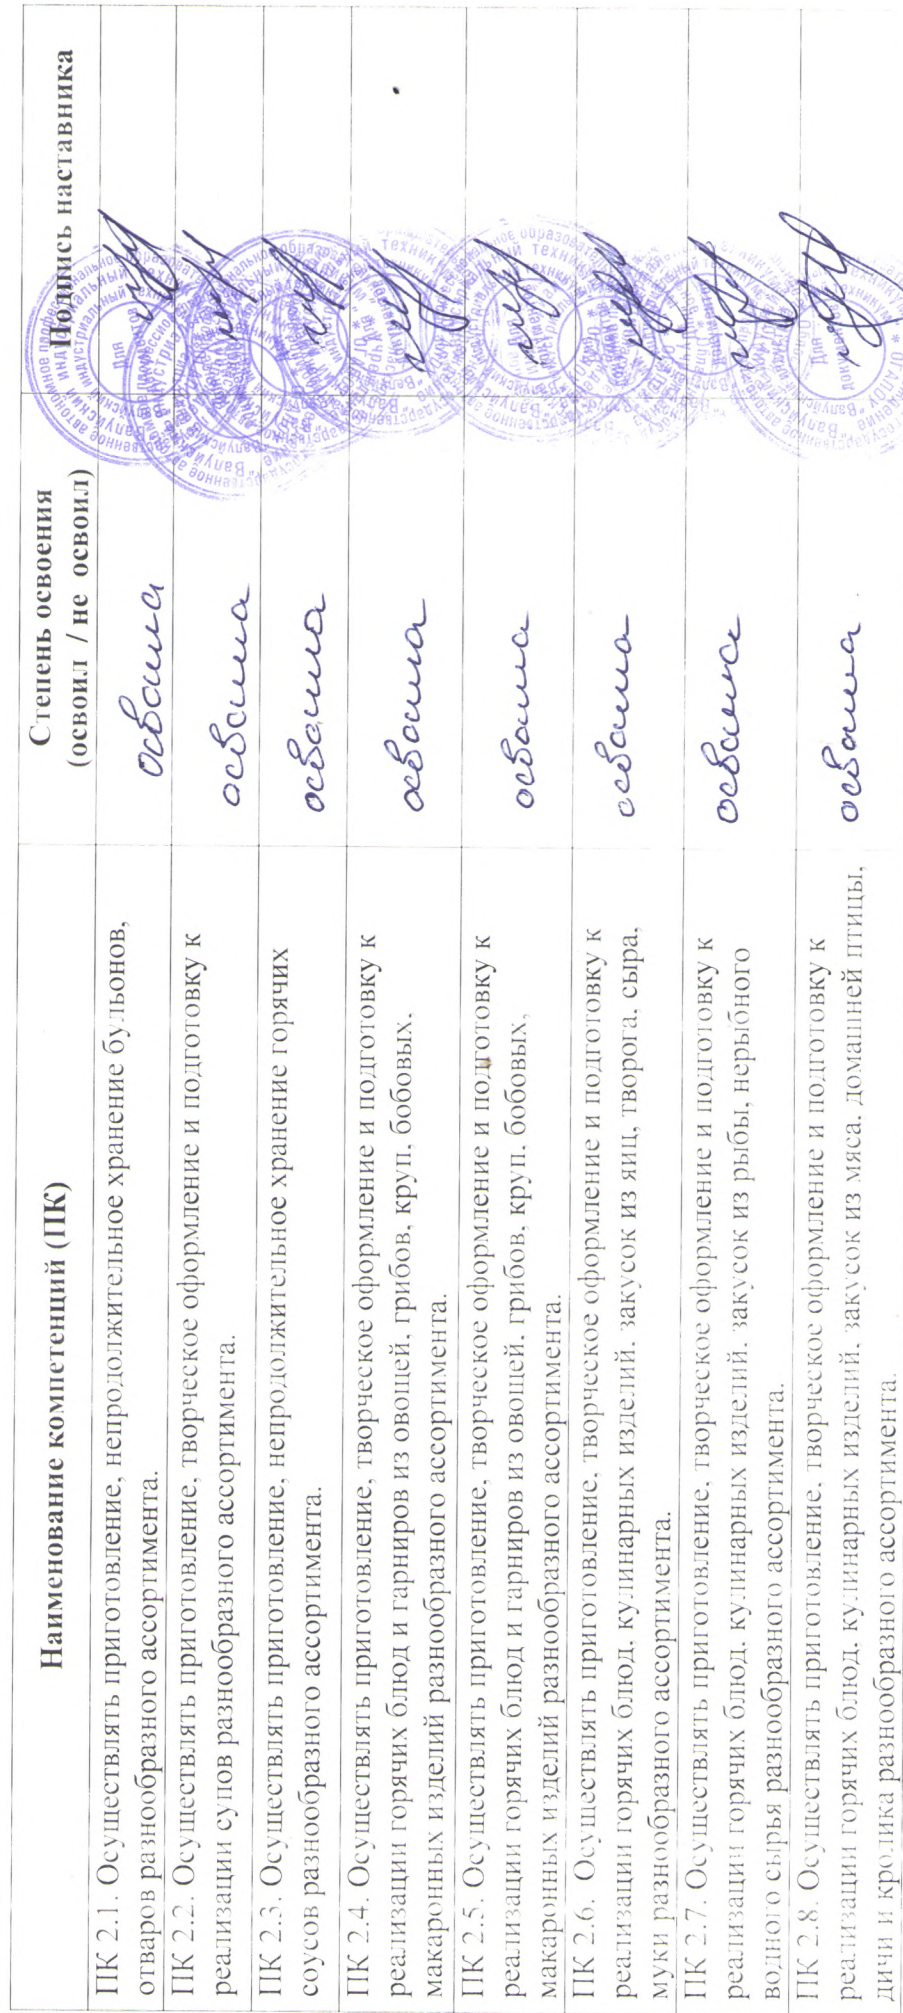 Наименование компетенций (ПК)
Степень освоения
(освоил / не освоил)
Подпись наставника
ПК 2.1. Осуществлять приготовление, непродолжительное хранение бульонов,
отваров разнообразного ассортимента.
освоила
ПК 2.2. Осуществлять приготовление, творческое оформление и подготовку к
реализации супов разнообразного ассортимента.
освоила
ПК 2.3. Осуществлять приготовление, непродолжительное хранение горячих
соусов разнообразного ассортимента.
освоила
ПК 2.4. Осуществлять приготовление, творческое оформление и подготовку к
реализации горячих блюд и гарниров из овощей, грибов, круп, бобовых,
макаронных изделий разнообразного ассортимента.
освоила
ПК 2.5. Осуществлять приготовление, творческое оформление и подготовку к
реализации горячих блюд и гарниров из овощей, грибов, круп, бобовых,
макаронных изделий разнообразного ассортимента.
освоила
ПК 2.6. Осуществлять приготовление, творческое оформление и подготовку к
реализации горячих блюд, кулинарных изделий, закусок из яиц, творога, сыра,
муки разнообразного ассортимента.
освоила
ПК 2.7. Осуществлять приготовление, творческое оформление и подготовку к
реализации горячих блюд, кулинарных изделий, закусок из рыбы, нерыбного
водного сырья разнообразного ассортимента.
освоила
ПК 2.8. Осуществлять приготовление, творческое оформление и подготовку к
реализации горячих блюд, кулинарных изделий, закусок из мяса, домашней птицы,
дичи и кролика разнообразного ассортимента.
освоила